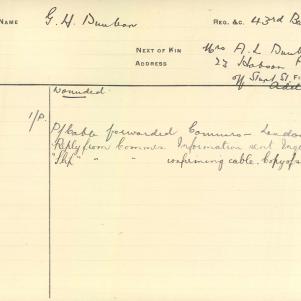 NAME G. H. Dunbar REG. &C. 43rd Ba
NEXT OF KIN Mrs A. L. Dunb
ADDRESS 27 Hobson
off Sturt St.
Adel
Wounded.
1/P. Cable forwarded Commrs — London
Reply from Commrs Information sent
" " confirming cable. Copy of